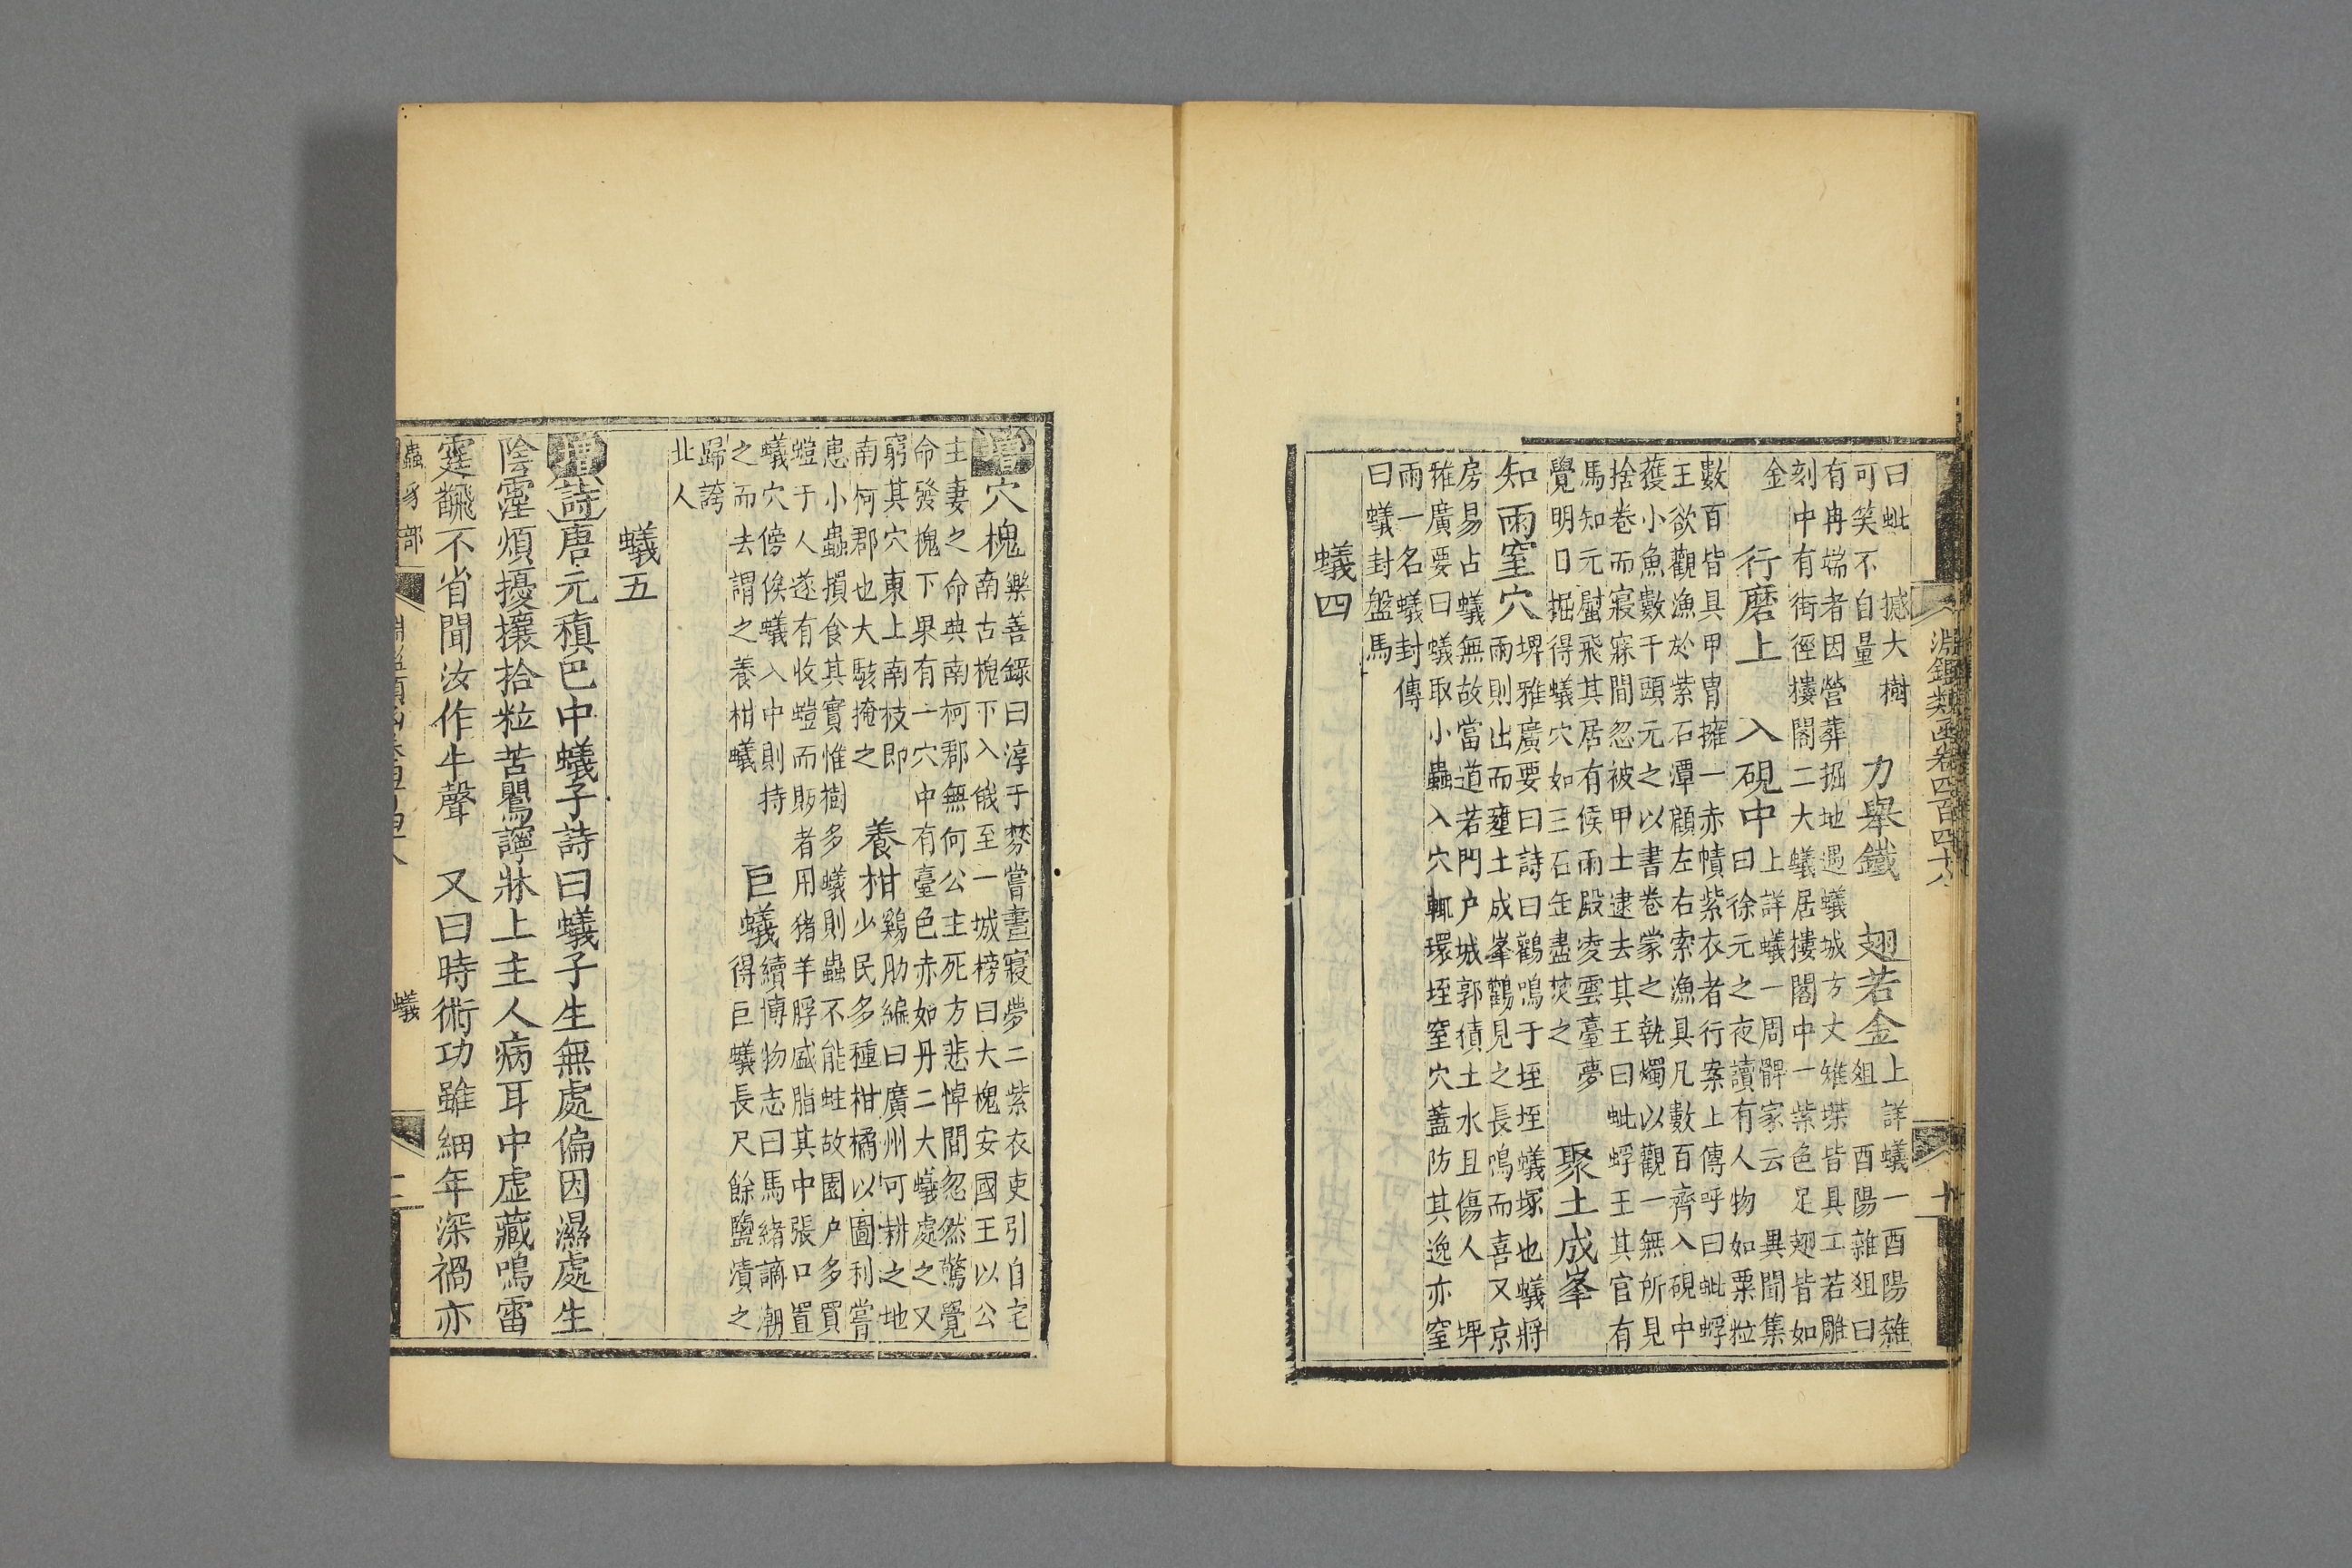 淵鑑類函卷四百四十八 十
曰蚍 撼大樹
可笑不自量
力舉鐵 翅若金
上詳蟻一酉陽雜
俎 酉陽雜俎曰
有冉端者因營葬掘地遇蟻城方丈雉堞皆具工若雕
刻中有街徑樓閣二大蟻居樓閣中一紫色足翅皆如
金 行磨上 入硯中
上詳蟻一周髀家云 異聞集
曰徐元之夜讀有人物如粟粒
數百皆具甲冑擁一赤幘紫衣者行案上傳呼曰蚍蜉
王欲觀漁於紫石潭顧左右索漁具凡數百齊入硯中
獲小魚數千頭元之以書卷蒙之執燭以觀一無所見
捨卷而寢寐間忽被甲士逮去其王曰蚍蜉王其官有
馬知元蠶飛其居有候雨殿凌雲臺夢
覺明日掘得蟻穴如三石缶盡焚之
聚土成峯
知雨窒穴
埤雅廣要曰詩曰鸛鳴于垤垤蟻塚也蟻將
雨則出而壅土成峯鸛見之長鳴而喜又京
房易占蟻無故當道若門户城郭積土水且傷人 埤
雅廣要曰蟻取小蟲入穴輒環垤窒穴蓋防其逸亦窒
雨一名蟻封傳
曰蟻封盤馬
蟻四
增穴槐
樂善錄曰淳于棼嘗晝寢夢二紫衣吏引自宅
南古槐下入俄至一城榜曰大槐安國王以公
主妻之命典南柯郡無何公主死方悲悼間忽然驚覺
命發槐下果有一穴中有臺色赤如丹二大蟻處之又
窮其穴東上南枝即
南柯郡也大駭掩之
養柑
鷄肋編曰廣州可耕之地
少民多種柑橘以圖利嘗
患小蟲損食其實惟樹多蟻則蟲不能蛀故園户多買
螘于人遂有收螘而販者用猪羊脬盛脂其中張口置
蟻穴傍俟蟻入中則持
之而去謂之養柑蟻
巨蟻
續博物志曰馬緒謫潮
得巨蟻長尺餘鹽漬之
歸誇
北人
蟻五
增詩唐元稹巴中蟻子詩曰蟻子生無處偏因濕處生
陰霪煩擾攘拾粒苦嚶嚀牀上主人病耳中虛藏鳴雷
霆翻不省聞汝作牛聲 又曰時術功雖細年深禍亦
蟲豸部 蟻